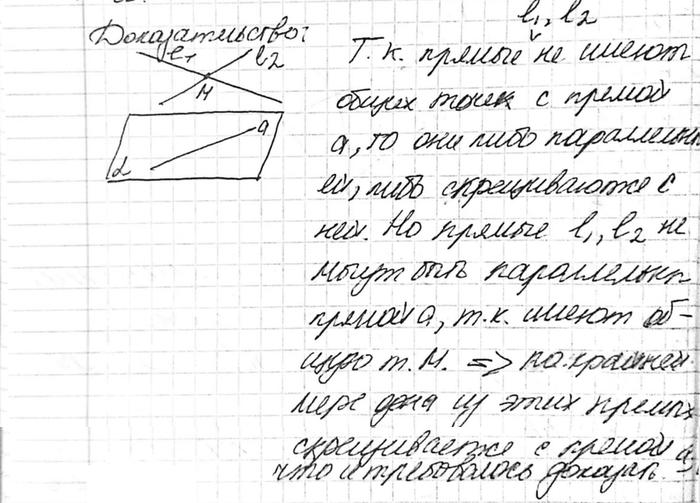 l₁, l₂
Доказательство:
l₁
l₂
M
a
α
Т.к. прямые не имеют
общих точек с прямой
a, то они либо параллельн
ей, либо скрещиваются с
ней. Но прямые l₁, l₂ не
могут быть параллельн
прямой a, т.к. имеют об-
щую т. М. => по крайней
мере одна из этих прямых
скрещивается с прямой a,
что и требовалось доказать.